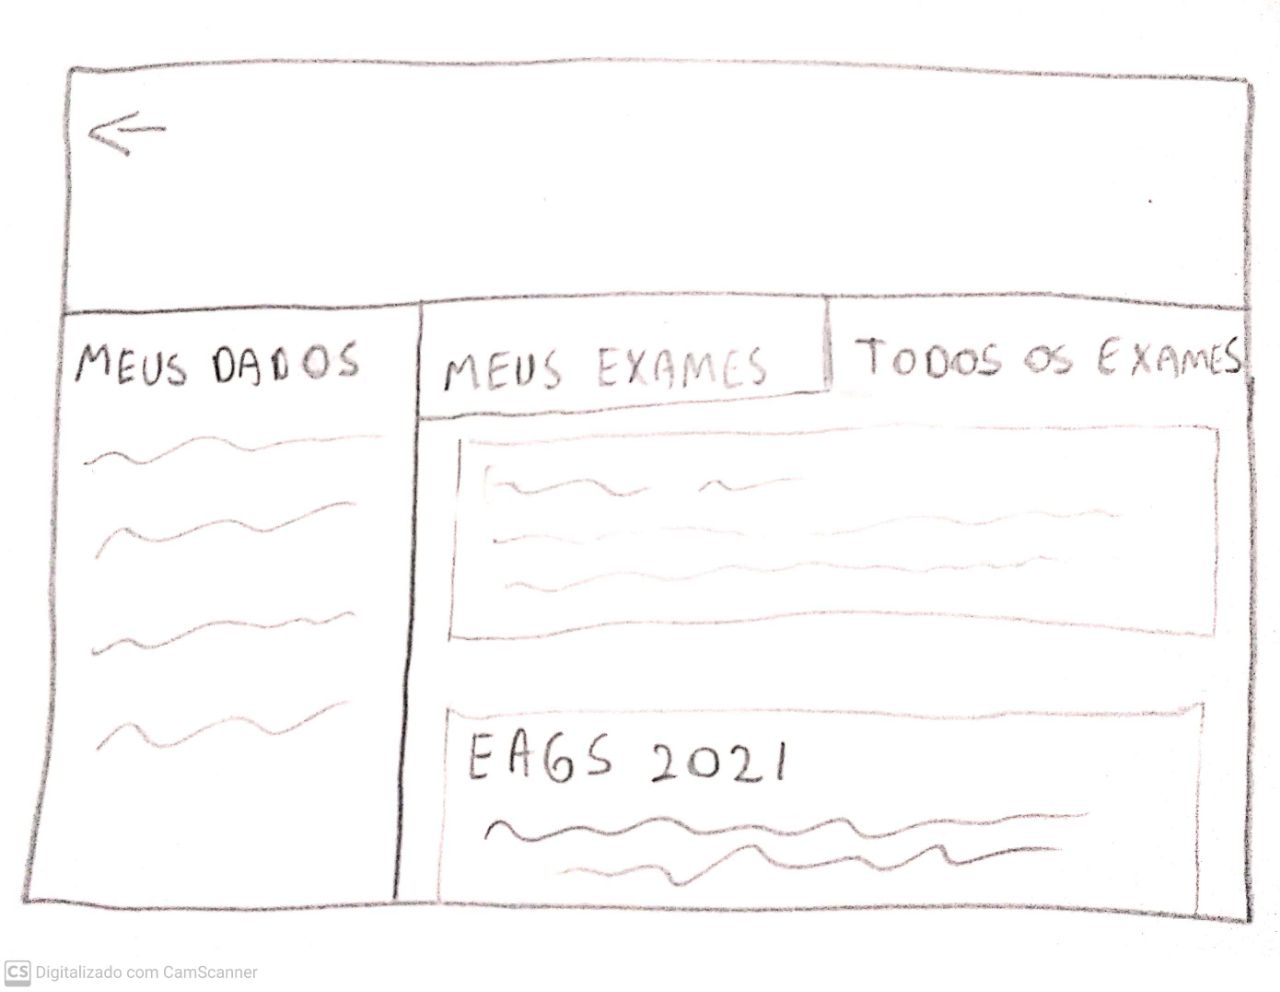 MEUS DADOS
MEUS EXAMES
TODOS OS EXAMES
EAGS 2021
CS Digitalizado com CamScanner